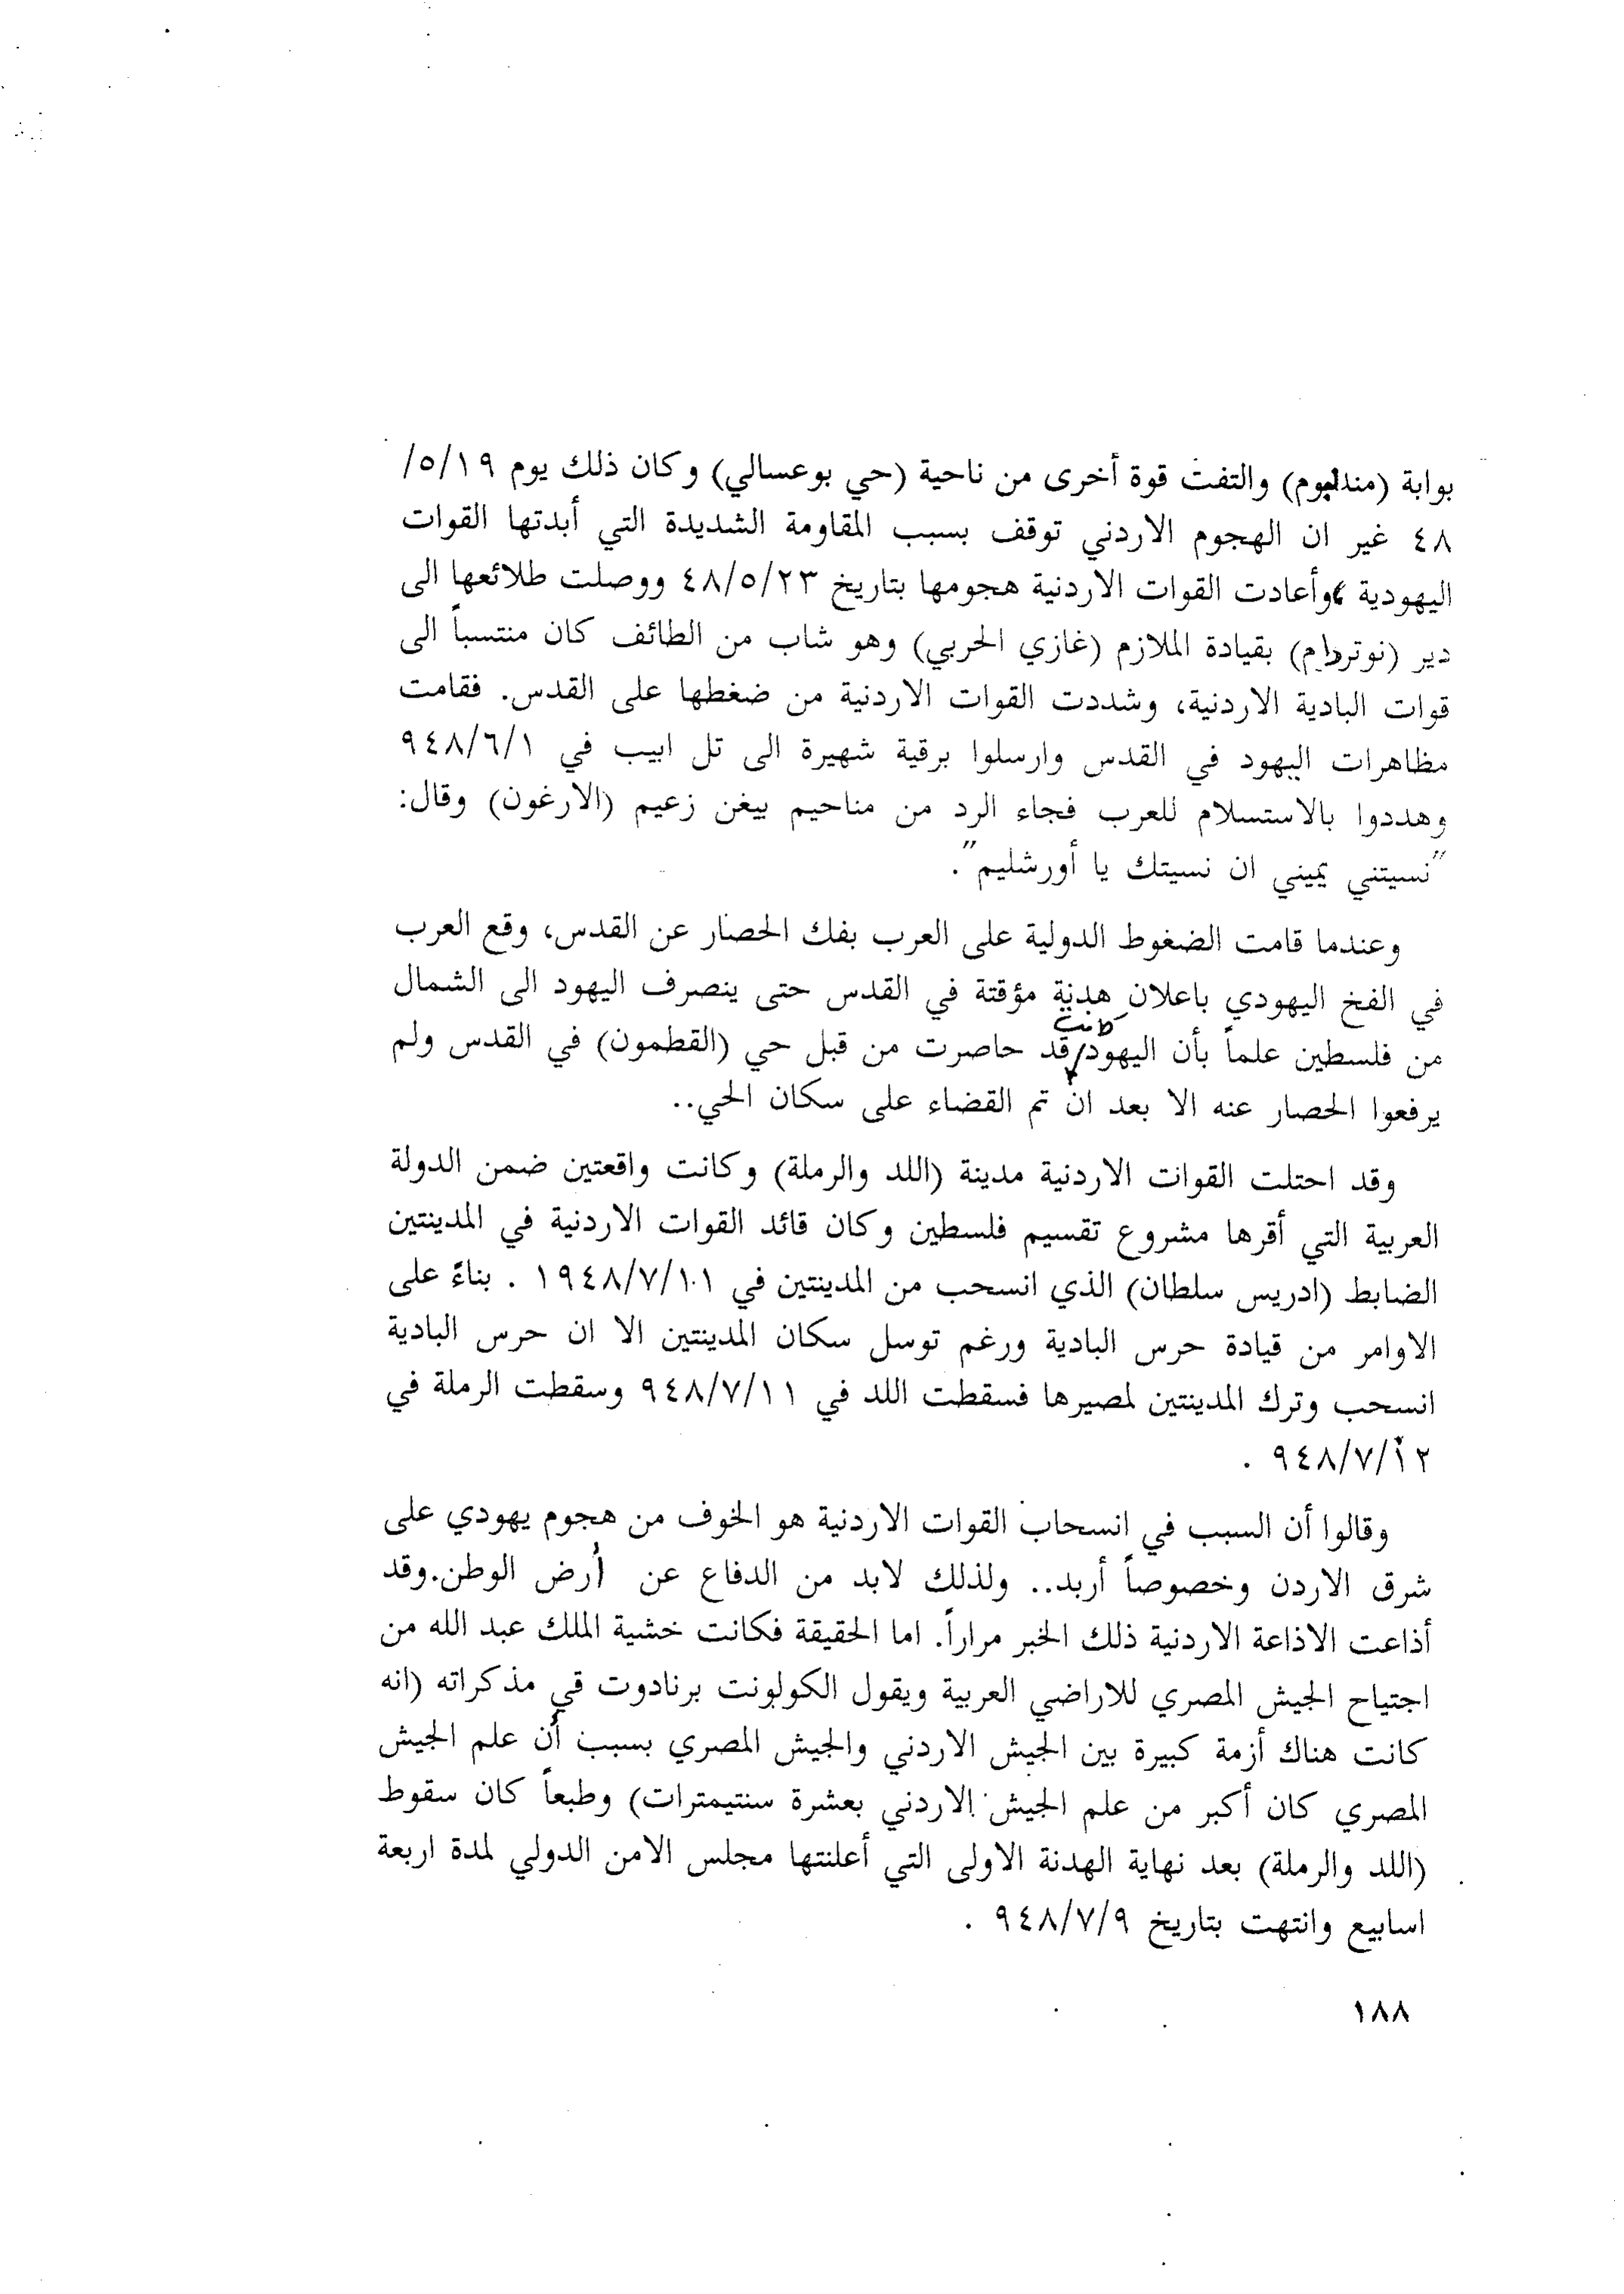 بوابة (مندلبوم) والتفت قوة أخرى من ناحية (حي بوعسالي) وكان ذلك يوم ١٩/٥/
٤٨ غير ان الهجوم الاردني توقف بسبب المقاومة الشديدة التي أبدتها القوات
اليهودية، وأعادت القوات الاردنية هجومها بتاريخ ٤٨/٥/٢٣ ووصلت طلائعها الى
دير (نوتردام) بقيادة الملازم (غازي الحربي) وهو شاب من الطائف كان منتسباً الى
قوات البادية الاردنية، وشددت القوات الاردنية من ضغطها على القدس. فقامت
مظاهرات اليهود في القدس وارسلوا برقية شهيرة الى تل ابيب في ٩٤٨/٦/١
وهددوا بالاستسلام للعرب فجاء الرد من مناحيم بيغن زعيم (الارغون) وقال:
"نسيتني يميني ان نسيتك يا أورشليم".
وعندما قامت الضغوط الدولية على العرب بفك الحصار عن القدس، وقع العرب
في الفخ اليهودي باعلان هدنة مؤقتة في القدس حتى ينصرف اليهود الى الشمال
من فلسطين علماً بأن اليهود كانت قد حاصرت من قبل حي (القطمون) في القدس ولم
يرفعوا الحصار عنه الا بعد ان تم القضاء على سكان الحي..
وقد احتلت القوات الاردنية مدينة (اللد والرملة) وكانت واقعتين ضمن الدولة
العربية التي أقرها مشروع تقسيم فلسطين وكان قائد القوات الاردنية في المدينتين
الضابط (ادريس سلطان) الذي انسحب من المدينتين في ١٩٤٨/٧/١٠١ . بناءً على
الاوامر من قيادة حرس البادية ورغم توسل سكان المدينتين الا ان حرس البادية
انسحب وترك المدينتين لمصيرها فسقطت اللد في ٩٤٨/٧/١١ وسقطت الرملة في
٩٤٨/٧/١٢ .
وقالوا أن السبب في انسحاب القوات الاردنية هو الخوف من هجوم يهودي على
شرق الاردن وخصوصاً أربد.. ولذلك لابد من الدفاع عن أرض الوطن. وقد
أذاعت الاذاعة الاردنية ذلك الخبر مراراً. اما الحقيقة فكانت خشية الملك عبد الله من
اجتياح الجيش المصري للاراضي العربية ويقول الكولونت برنادوت قي مذكراته (انه
كانت هناك أزمة كبيرة بين الجيش الاردني والجيش المصري بسبب أن علم الجيش
المصري كان أكبر من علم الجيش الاردني بعشرة سنتيمترات) وطبعاً كان سقوط
(اللد والرملة) بعد نهاية الهدنة الاولى التي أعلنتها مجلس الامن الدولي لمدة اربعة
اسابيع وانتهت بتاريخ ٩٤٨/٧/٩ .
١٨٨